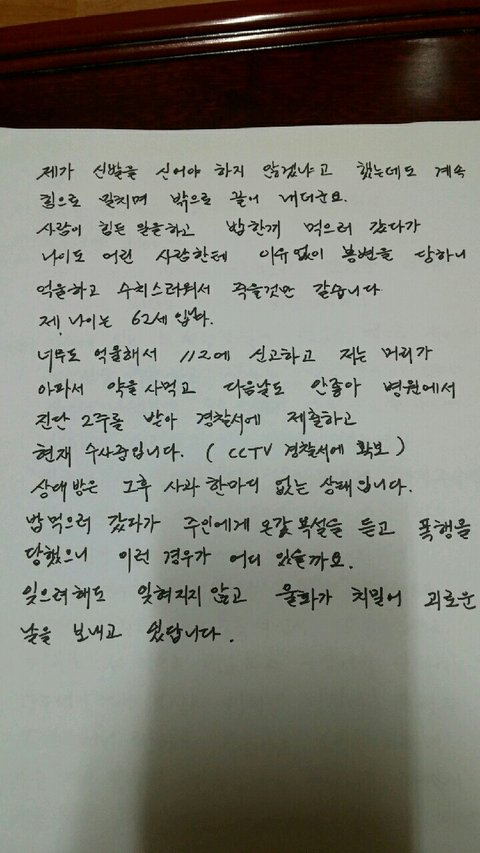 제가 신발을 신어야 하지 않겠냐고 했는데도 계속
힘으로 밀치며 밖으로 끌어 내더군요.
사람이 힘든 일을하고 밥한끼 먹으러 갔다가
나이도 어린 사람한테 이유없이 봉변을 당하니
억울하고 수치스러워서 죽을것만 같습니다
제, 나이는 62세입니다.
너무도 억울해서 112에 신고하고 저는 머리가
아파서 약을사먹고 다음날도 안좋아 병원에서
진단 2주를 받아 경찰서에 제출하고
현재 수사중입니다. ( CCTV 경찰서에 확보 )
상대방은 그후 사과한마디 없는 상태입니다.
밥먹으러 갔다가 주인에게 온갖욕설을 듣고 폭행을
당했으니 이런 경우가 어디 있을까요.
잊으려해도 잊혀지지않고 울화가 치밀어 괴로운
날을 보내고 있답니다.